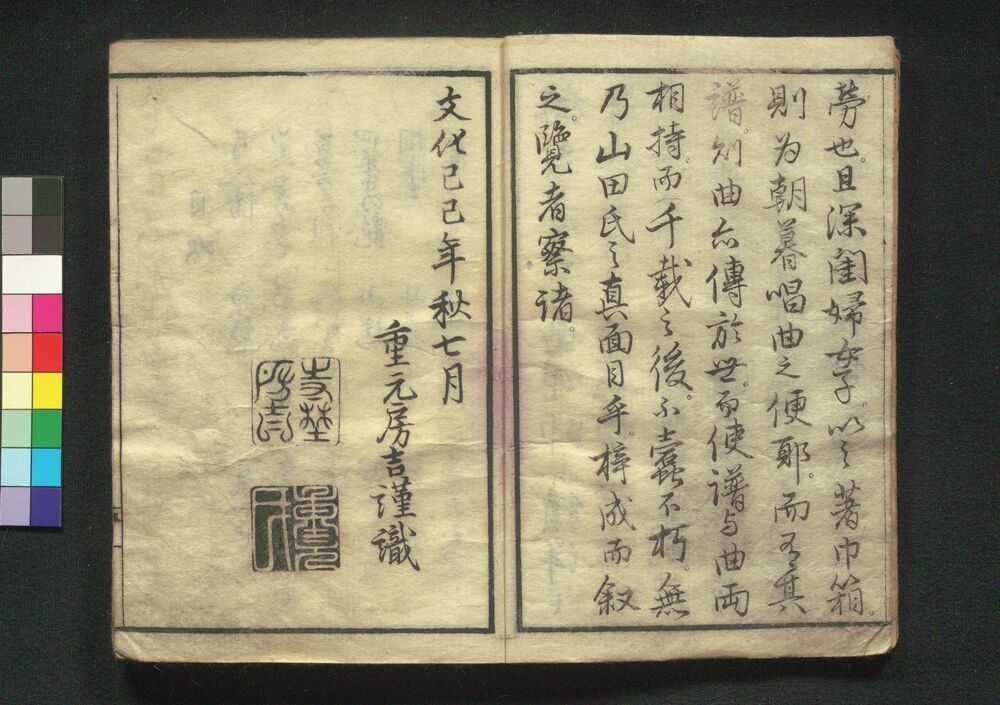 勞也。且深閨婦女子。以之著巾箱。
則为朝暮唱曲之便耶。而有其
譜。則曲亦傳於世。而使譜与曲両
相持。而千載之後。不蠹不朽。無
乃山田氏之真面目乎。梓成而叙
之。覽者察諸。
文化己巳年秋七月
重元房吉謹識